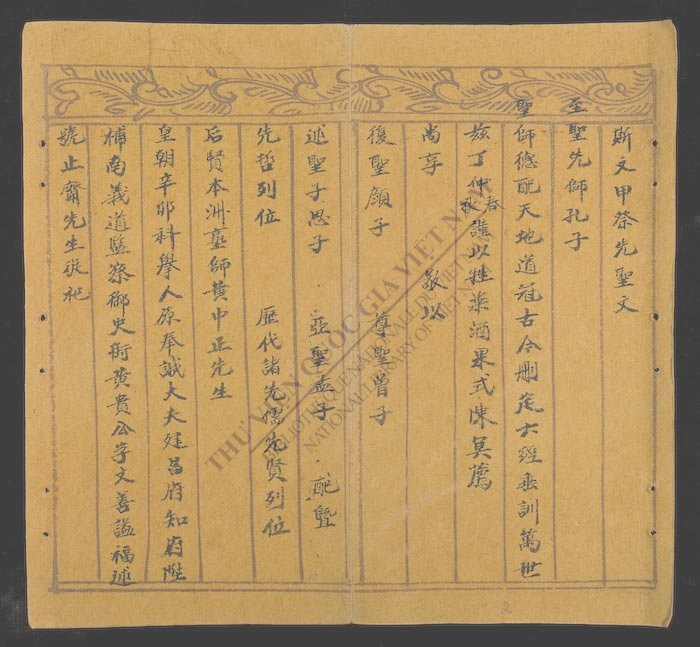 斯文甲祭先聖文
至聖先師孔子
聖師德配天地道冠古今刪定六經垂訓萬世
茲丁仲春秋謹以牲粢酒果式陳奠薦
尚享 敬以
復聖顏子 尊聖曾子
述聖子思子 亞聖孟子 配曁
先哲列位 歷代諸先儒先賢列位
后賢本洲塾師黃中正先生
皇朝辛卯科舉人原奉誠大夫建昌府知府陞
補南義道監察御史銜黃貴公字文善謚福述
號止齋先生從祀
THƯ VIỆN QUỐC GIA VIỆT NAM
BIBLIOTHÈQUE NATIONALE DU VIETNAM
NATIONAL LIBRARY OF VIETNAM
2